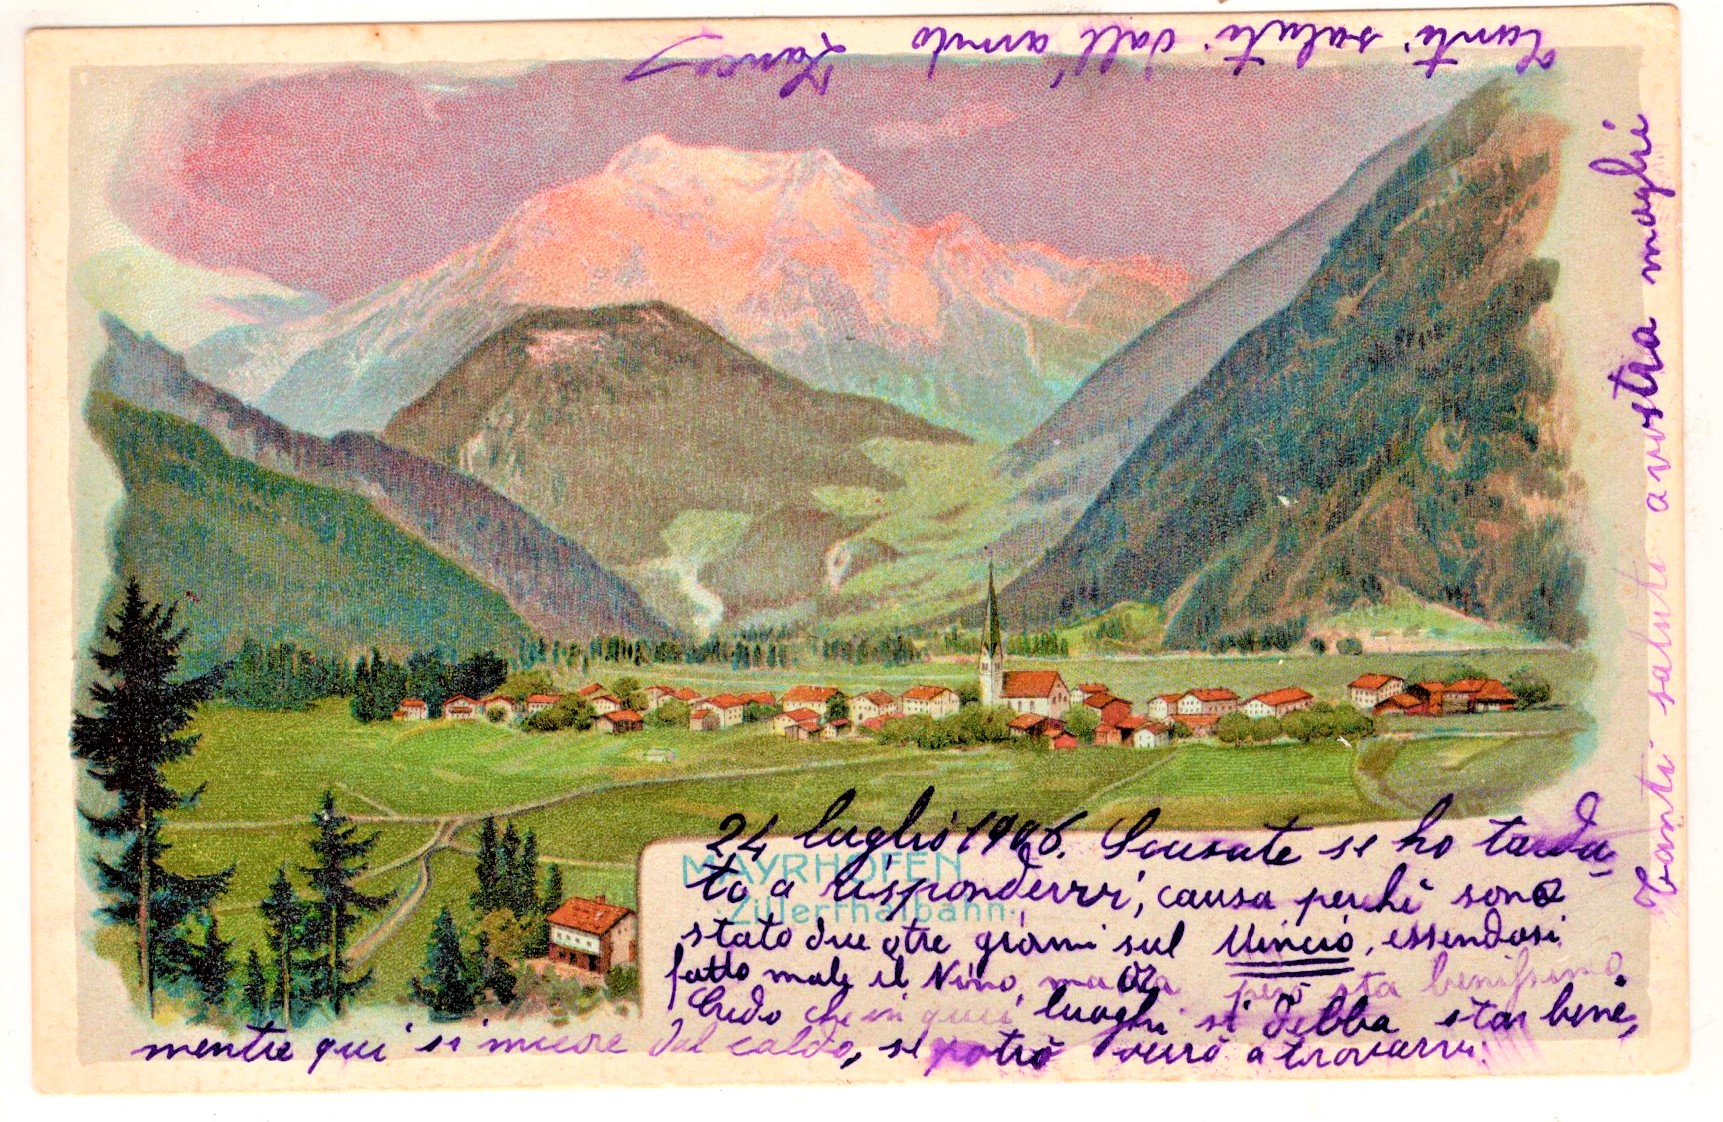 MAYRHOFEN
Zillerthalbahn.
24 luglio 1906. Scusate se ho tarda-
to a rispondervi, causa perchè sono
stato due o tre giorni sul Mincio, essendosi
fatto male il Nino, ma ora però sta benissimo
Credo che in quei luoghi si debba star bene,
mentre qui si muore dal caldo, se potrò verrò a trovarvi.
Tanti saluti a vostra moglie
Tanti saluti dall'amico